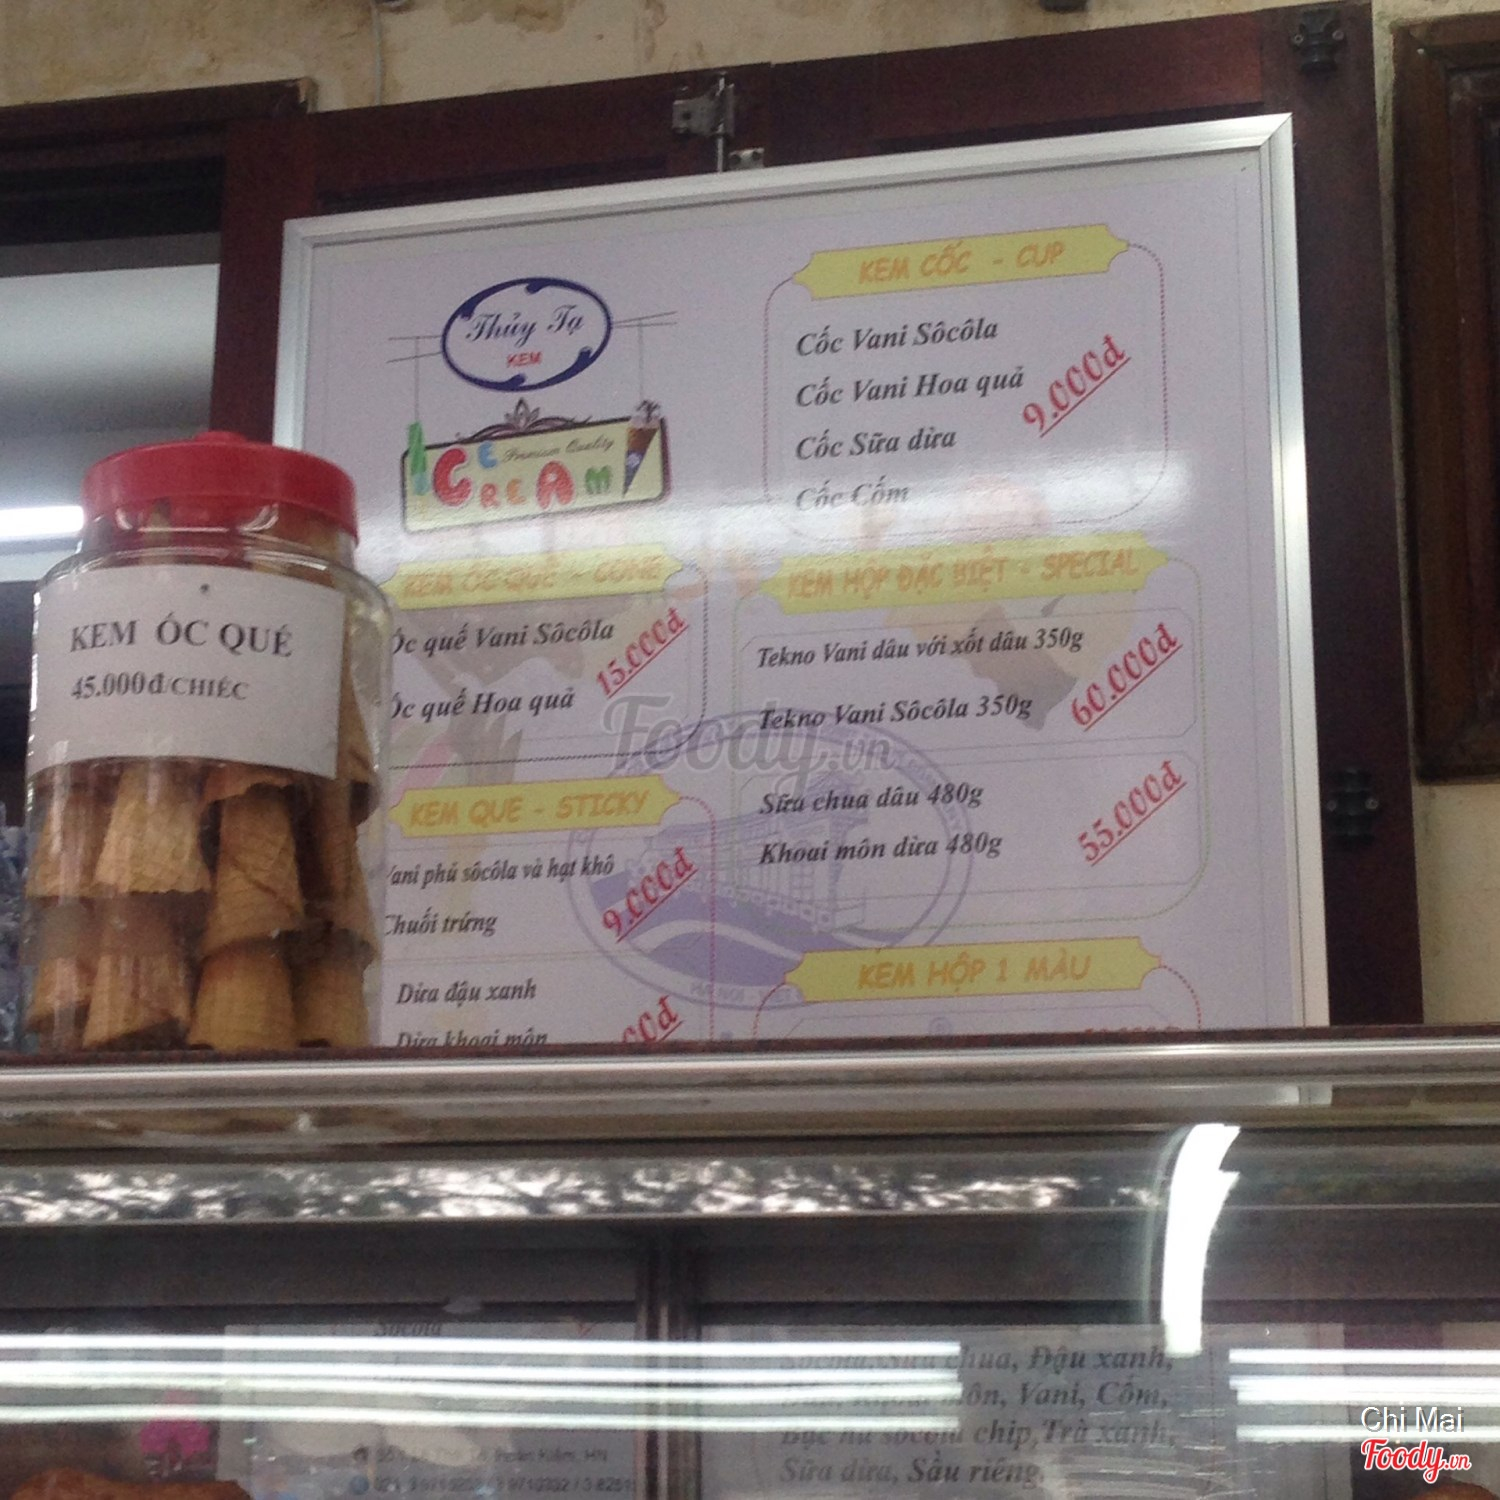 Thủy Tạ
KEM
ICE
Premium Quality
CREAM
KEM ỐC QUẾ - CONE
Ốc quế Vani Sôcôla
Ốc quế Hoa quả
15.000đ
KEM QUE - STICKY
Vani phủ sôcôla và hạt khô
Chuối trứng
9.000đ
Dừa đậu xanh
Dừa khoai môn
00đ
KEM CỐC - CUP
Cốc Vani Sôcôla
Cốc Vani Hoa quả
Cốc Sữa dừa
Cốc Cốm
9.000đ
KEM HỘP ĐẶC BIỆT - SPECIAL
Tekno Vani dâu với xốt dâu 350g
Tekno Vani Sôcôla 350g
60.000đ
Sữa chua dâu 480g
Khoai môn dừa 480g
55.000đ
KEM HỘP 1 MÀU
KEM ÓC QUÉ
45.000đ/CHIẾC
Foody.vn
Sôcôla
Sôcôla, Sữa chua, Đậu xanh,
môn, Vani, Cốm,
Bạc hà sôcôla chip, Trà xanh,
Sữa dừa, Sầu riêng
Chi Mai
Foody.vn